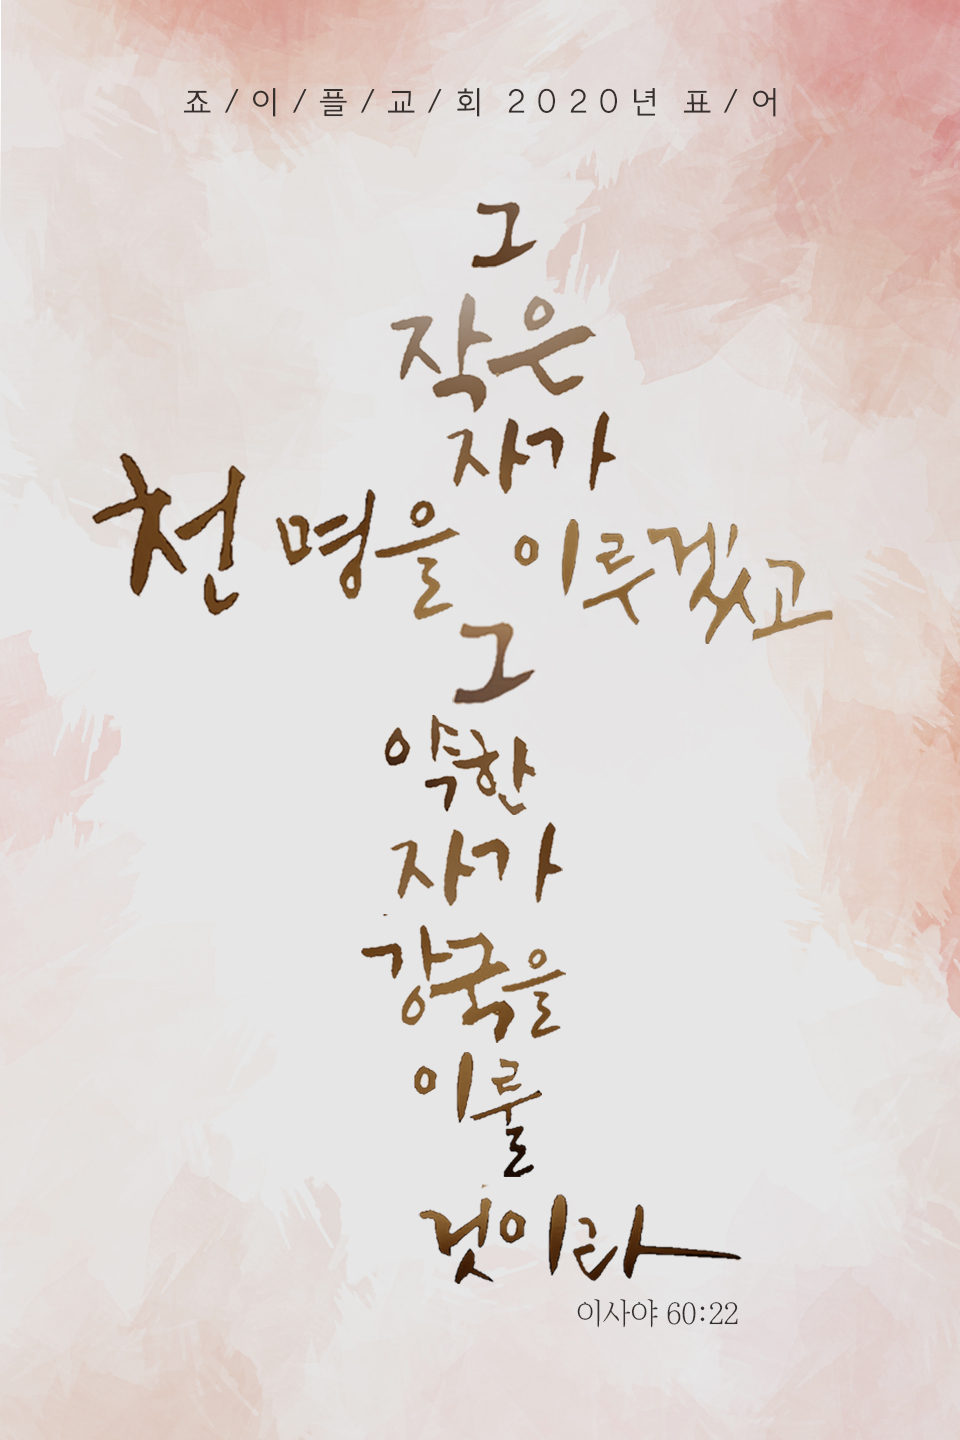 죠/이/플/교/회 2020년 표/어
그
작은
자가
천 명을 이루겠고
그
약한
자가
강국을
이룰
것이라
이사야 60:22